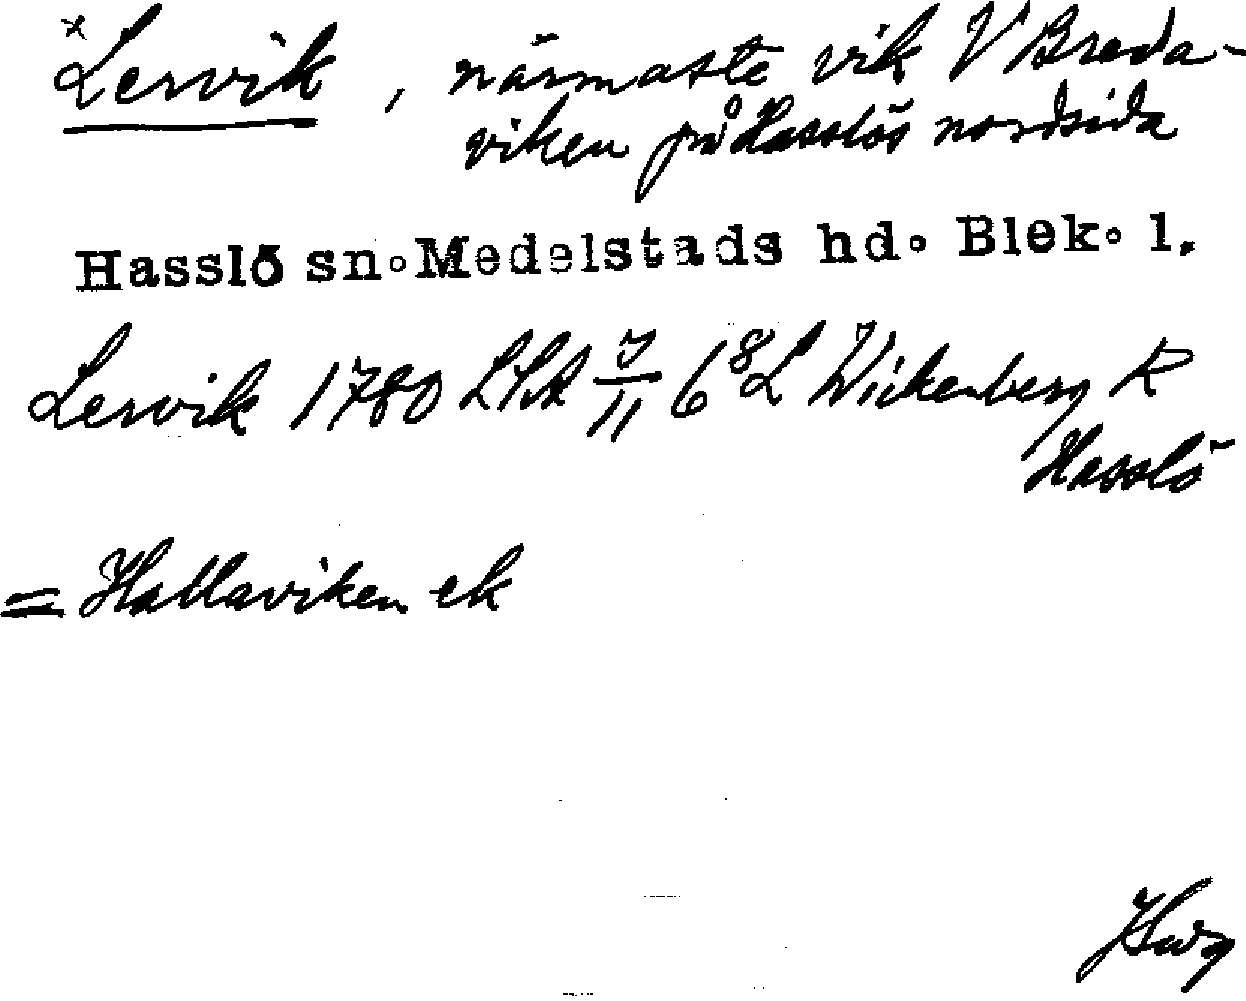 * Lervik, närmaste vik V Breda-
viken på Hasslös nordsida
Hasslö sn. Medelstads hd. Blek. l.
Lervik 1780 LSA 7/11 6 8 L Wickenberg R
Hasslö
= Hallaviken ek